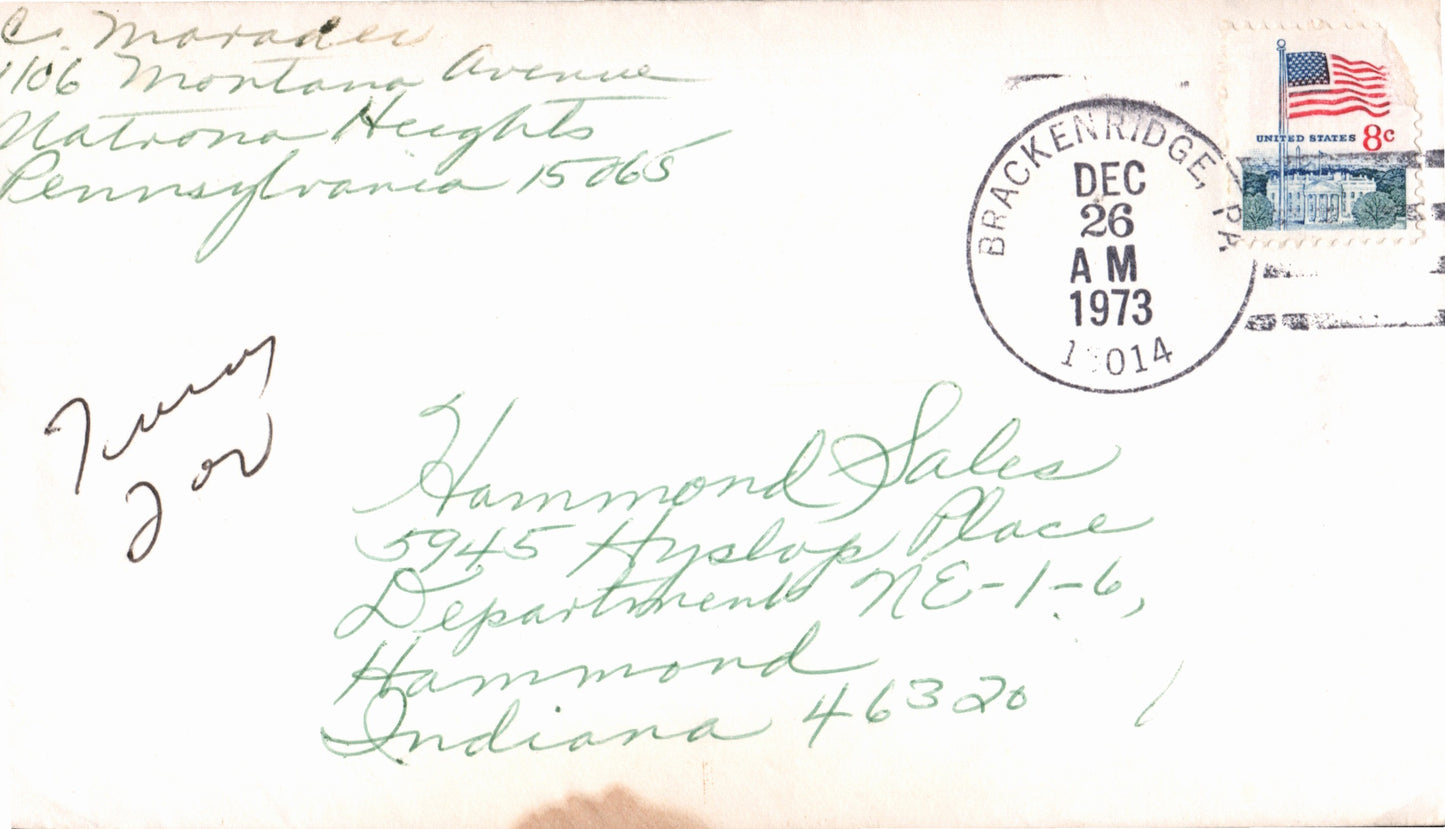 C.
1106 Montana Avenue
Natrona Heights
Pennsylvania 15065
UNITED STATES 8c
BRACKENRIDGE, PA
DEC
26
AM
1973
1 014
Hammond Sales
5945 Hyslop Place
Department NE-1-6,
Hammond
Indiana 46320